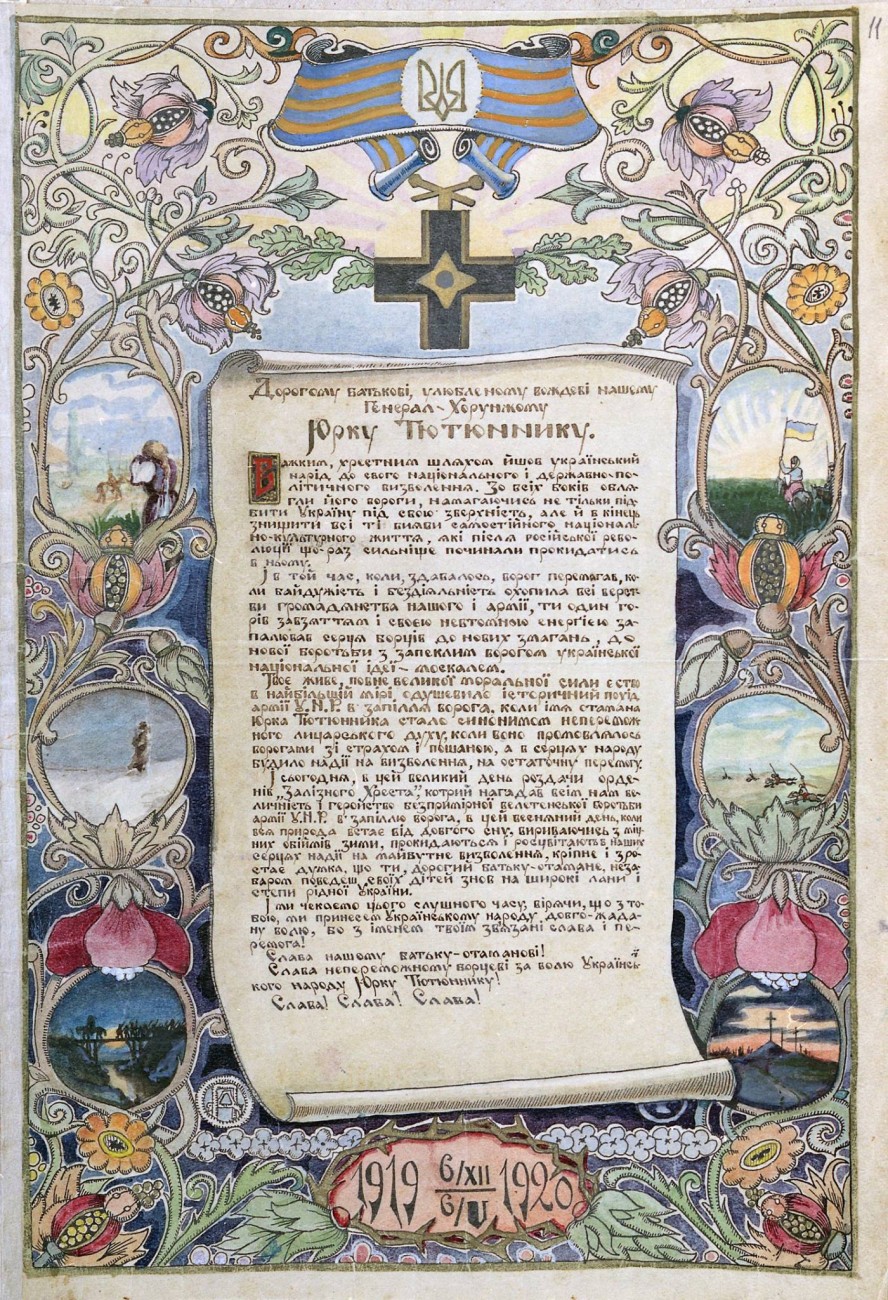 11
Дорогому батькові, улюбленому вождеві нашому
Генерал-Хорунжому
Юрку Тютюннику.
Важким, хрестним шляхом йшов український
нарід до свого національного і державно-по-
літичного визволення. Зо всіх боків обля-
гли його вороги, намагаючись не тільки під-
бити Україну під свою зверхність, але й в кінець
знищити всі ті вияви самостійного національ-
но-культурного життя, які після російської рево-
люції що-раз сильніше починали прокидатись
в ньому.
І в той час, коли, здавалось, ворог перемагав, ко-
ли байдужість і бездіяльність охопила всі верст-
ви громадянства нашого і армії, ти один го-
рів завзяттям і своєю невтомною енергією за-
палював серця борців до нових змагань, до
нової боротьби з запеклим ворогом української
національної ідеї - москалем.
Твоє живе, повне великої моральної сили єство
в найбільшій мірі одушевило історичний похід
армії У.Н.Р. в запілля ворога, коли імя отамана
Юрка Тютюнника стало синонимом непереможе-
ного лицарського духу, коли воно промовлялось
ворогами зі страхом і пошаною, а в серцях народу
будило надії на визволення, на остаточну перемогу.
Сьогодня, в цей великий день роздачи орде-
нів „Залізного Хреста", котрий нагадав всім нам ве-
личність і геройство безпримірної велетенської боротьби
армії У.Н.Р. в запіллю ворога, в цей весняний день, коли
вся природа встає від довгого сну, вириваючись з міц-
них обіймів зими, прокидаються і росцвітають в наших
серцях надії на майбутнє визволення, кріпне і зро-
стає думка, що ти, дорогий батьку-отамане, неза-
баром поведеш своїх дітей знов на широкі лани і
степи рідної України.
І ми чекаємо цього слушного часу, вірячи, що з то-
бою, ми принесем Українському народу довго-жада-
ну волю, бо з іменем твоїм звязані слава і пе-
ремога!
Слава нашому батьку-отаманові!
Слава непереможному борцеві за волю Українсь-
кого народу Юрку Тютюннику!
Слава! Слава! Слава!
1919 6/XII 6/V 1920